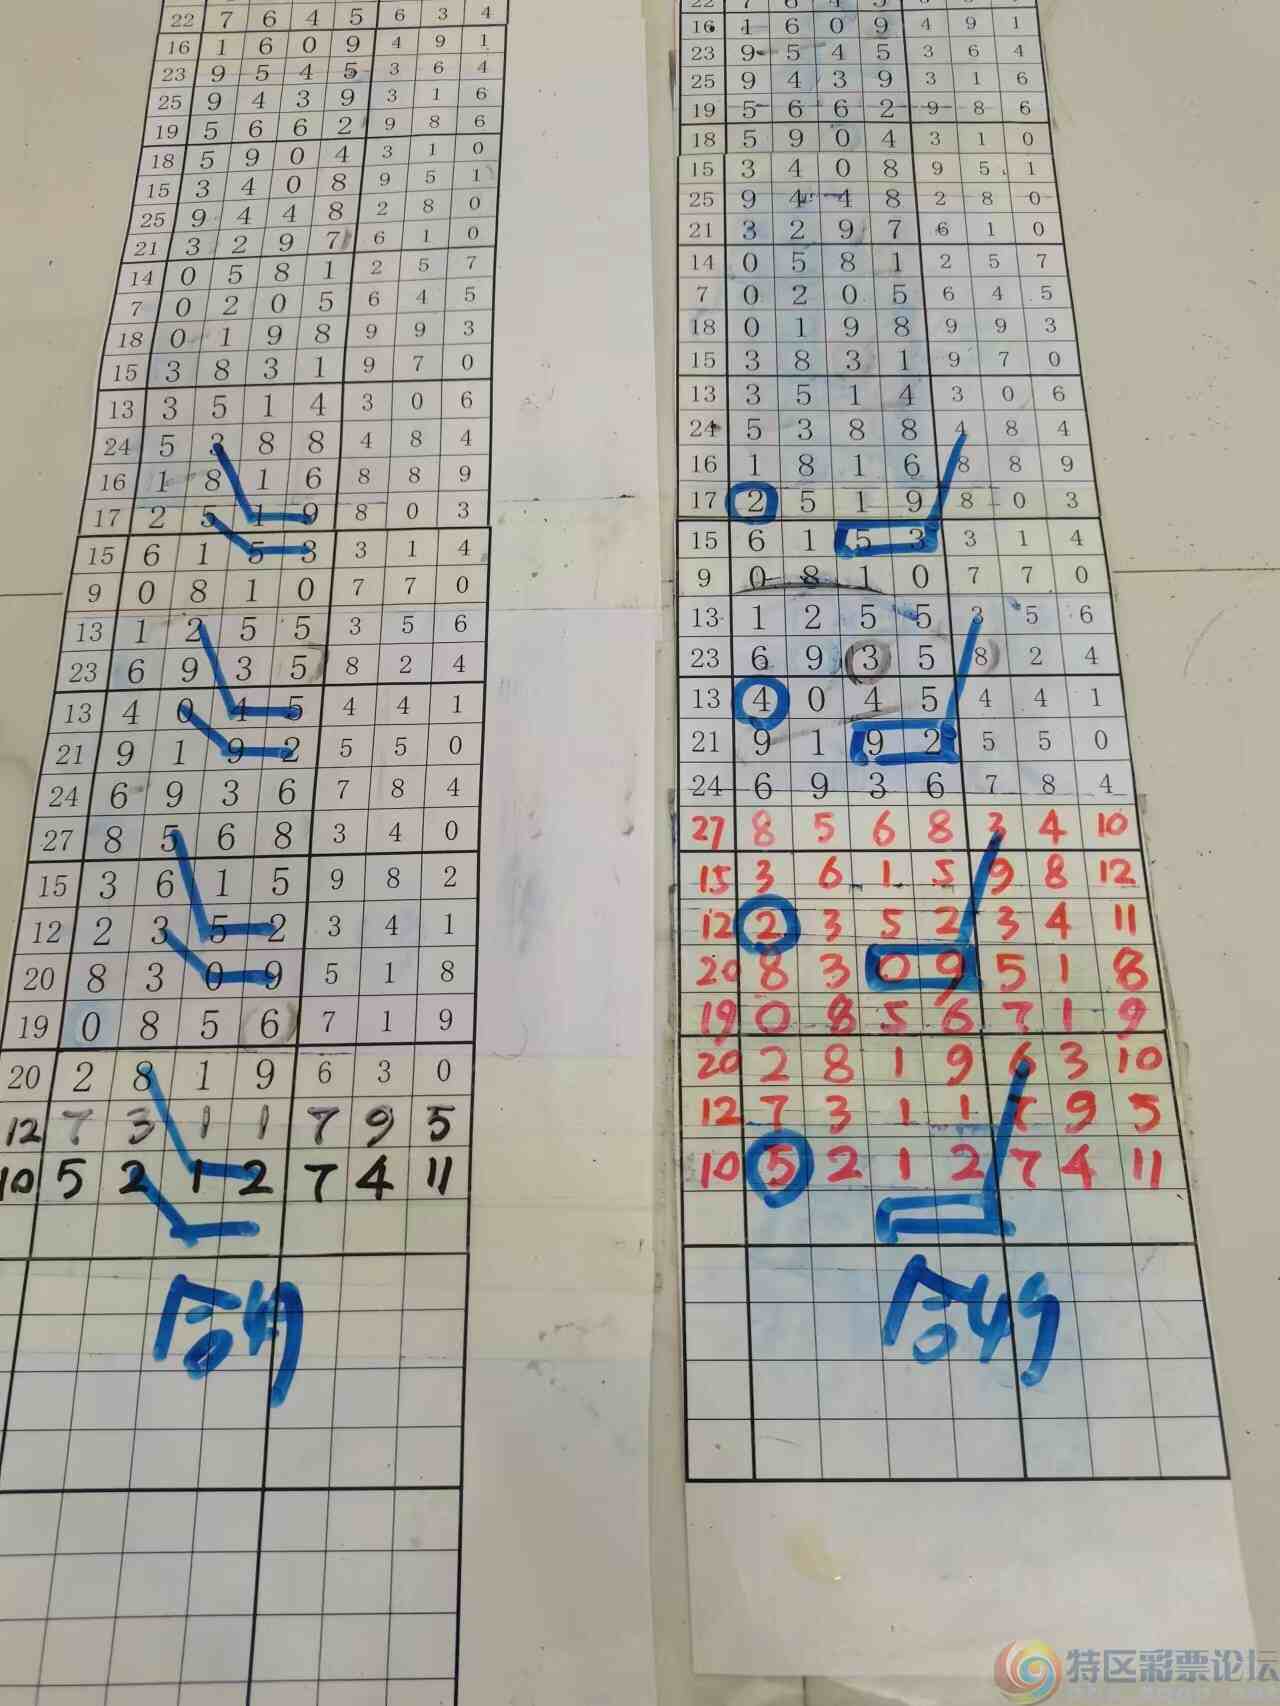 22 7 6 4 5 6 3 4
16 1 6 0 9 4 9 1
23 9 5 4 5 3 6 4
25 9 4 3 9 3 1 6
19 5 6 6 2 9 8 6
18 5 9 0 4 3 1 0
15 3 4 0 8 9 5 1
25 9 4 4 8 2 8 0
21 3 2 9 7 6 1 0
14 0 5 8 1 2 5 7
7 0 2 0 5 6 4 5
18 0 1 9 8 9 9 3
15 3 8 3 1 9 7 0
13 3 5 1 4 3 0 6
24 5 3 8 8 4 8 4
16 1 8 1 6 8 8 9
17 2 5 1 9 8 0 3
15 6 1 5 3 3 1 4
9 0 8 1 0 7 7 0
13 1 2 5 5 3 5 6
23 6 9 3 5 8 2 4
13 4 0 4 5 4 4 1
21 9 1 9 2 5 5 0
24 6 9 3 6 7 8 4
27 8 5 6 8 3 4 0
15 3 6 1 5 9 8 2
12 2 3 5 2 3 4 1
20 8 3 0 9 5 1 8
19 0 8 5 6 7 1 9
20 2 8 1 9 6 3 0
12 7 3 1 1 7 9 5
10 5 2 1 2 7 4 11
合49
16 1 6 0 9 4 9 1
23 9 5 4 5 3 6 4
25 9 4 3 9 3 1 6
19 5 6 6 2 9 8 6
18 5 9 0 4 3 1 0
15 3 4 0 8 9 5 1
25 9 4 4 8 2 8 0
21 3 2 9 7 6 1 0
14 0 5 8 1 2 5 7
7 0 2 0 5 6 4 5
18 0 1 9 8 9 9 3
15 3 8 3 1 9 7 0
13 3 5 1 4 3 0 6
24 5 3 8 8 4 8 4
16 1 8 1 6 8 8 9
17 2 5 1 9 8 0 3
15 6 1 5 3 3 1 4
9 0 8 1 0 7 7 0
13 1 2 5 5 3 5 6
23 6 9 3 5 8 2 4
13 4 0 4 5 4 4 1
21 9 1 9 2 5 5 0
24 6 9 3 6 7 8 4
27 8 5 6 8 3 4 10
15 3 6 1 5 9 8 12
12 2 3 5 2 3 4 11
20 8 3 0 9 5 1 8
19 0 8 5 6 7 1 9
20 2 8 1 9 6 3 10
12 7 3 1 1 7 9 5
10 5 2 1 2 7 4 11
合49
特区彩票论坛